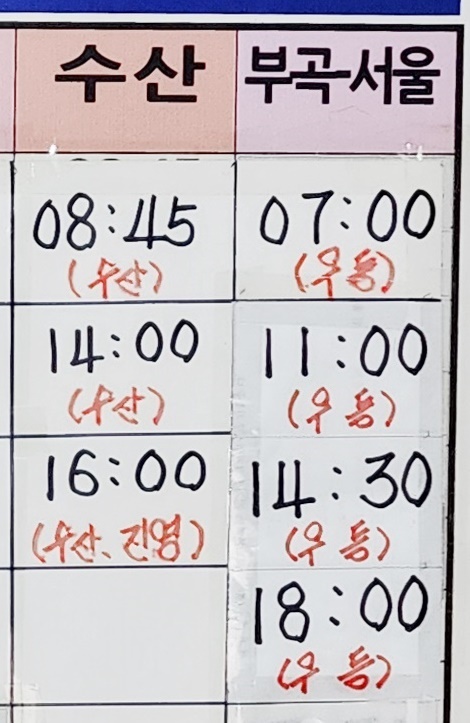 수산
부곡-서울
08:45
(수산)
07:00
(우등)
14:00
(수산)
11:00
(우등)
16:00
(수산, 진영)
14:30
(우등)
18:00
(우등)